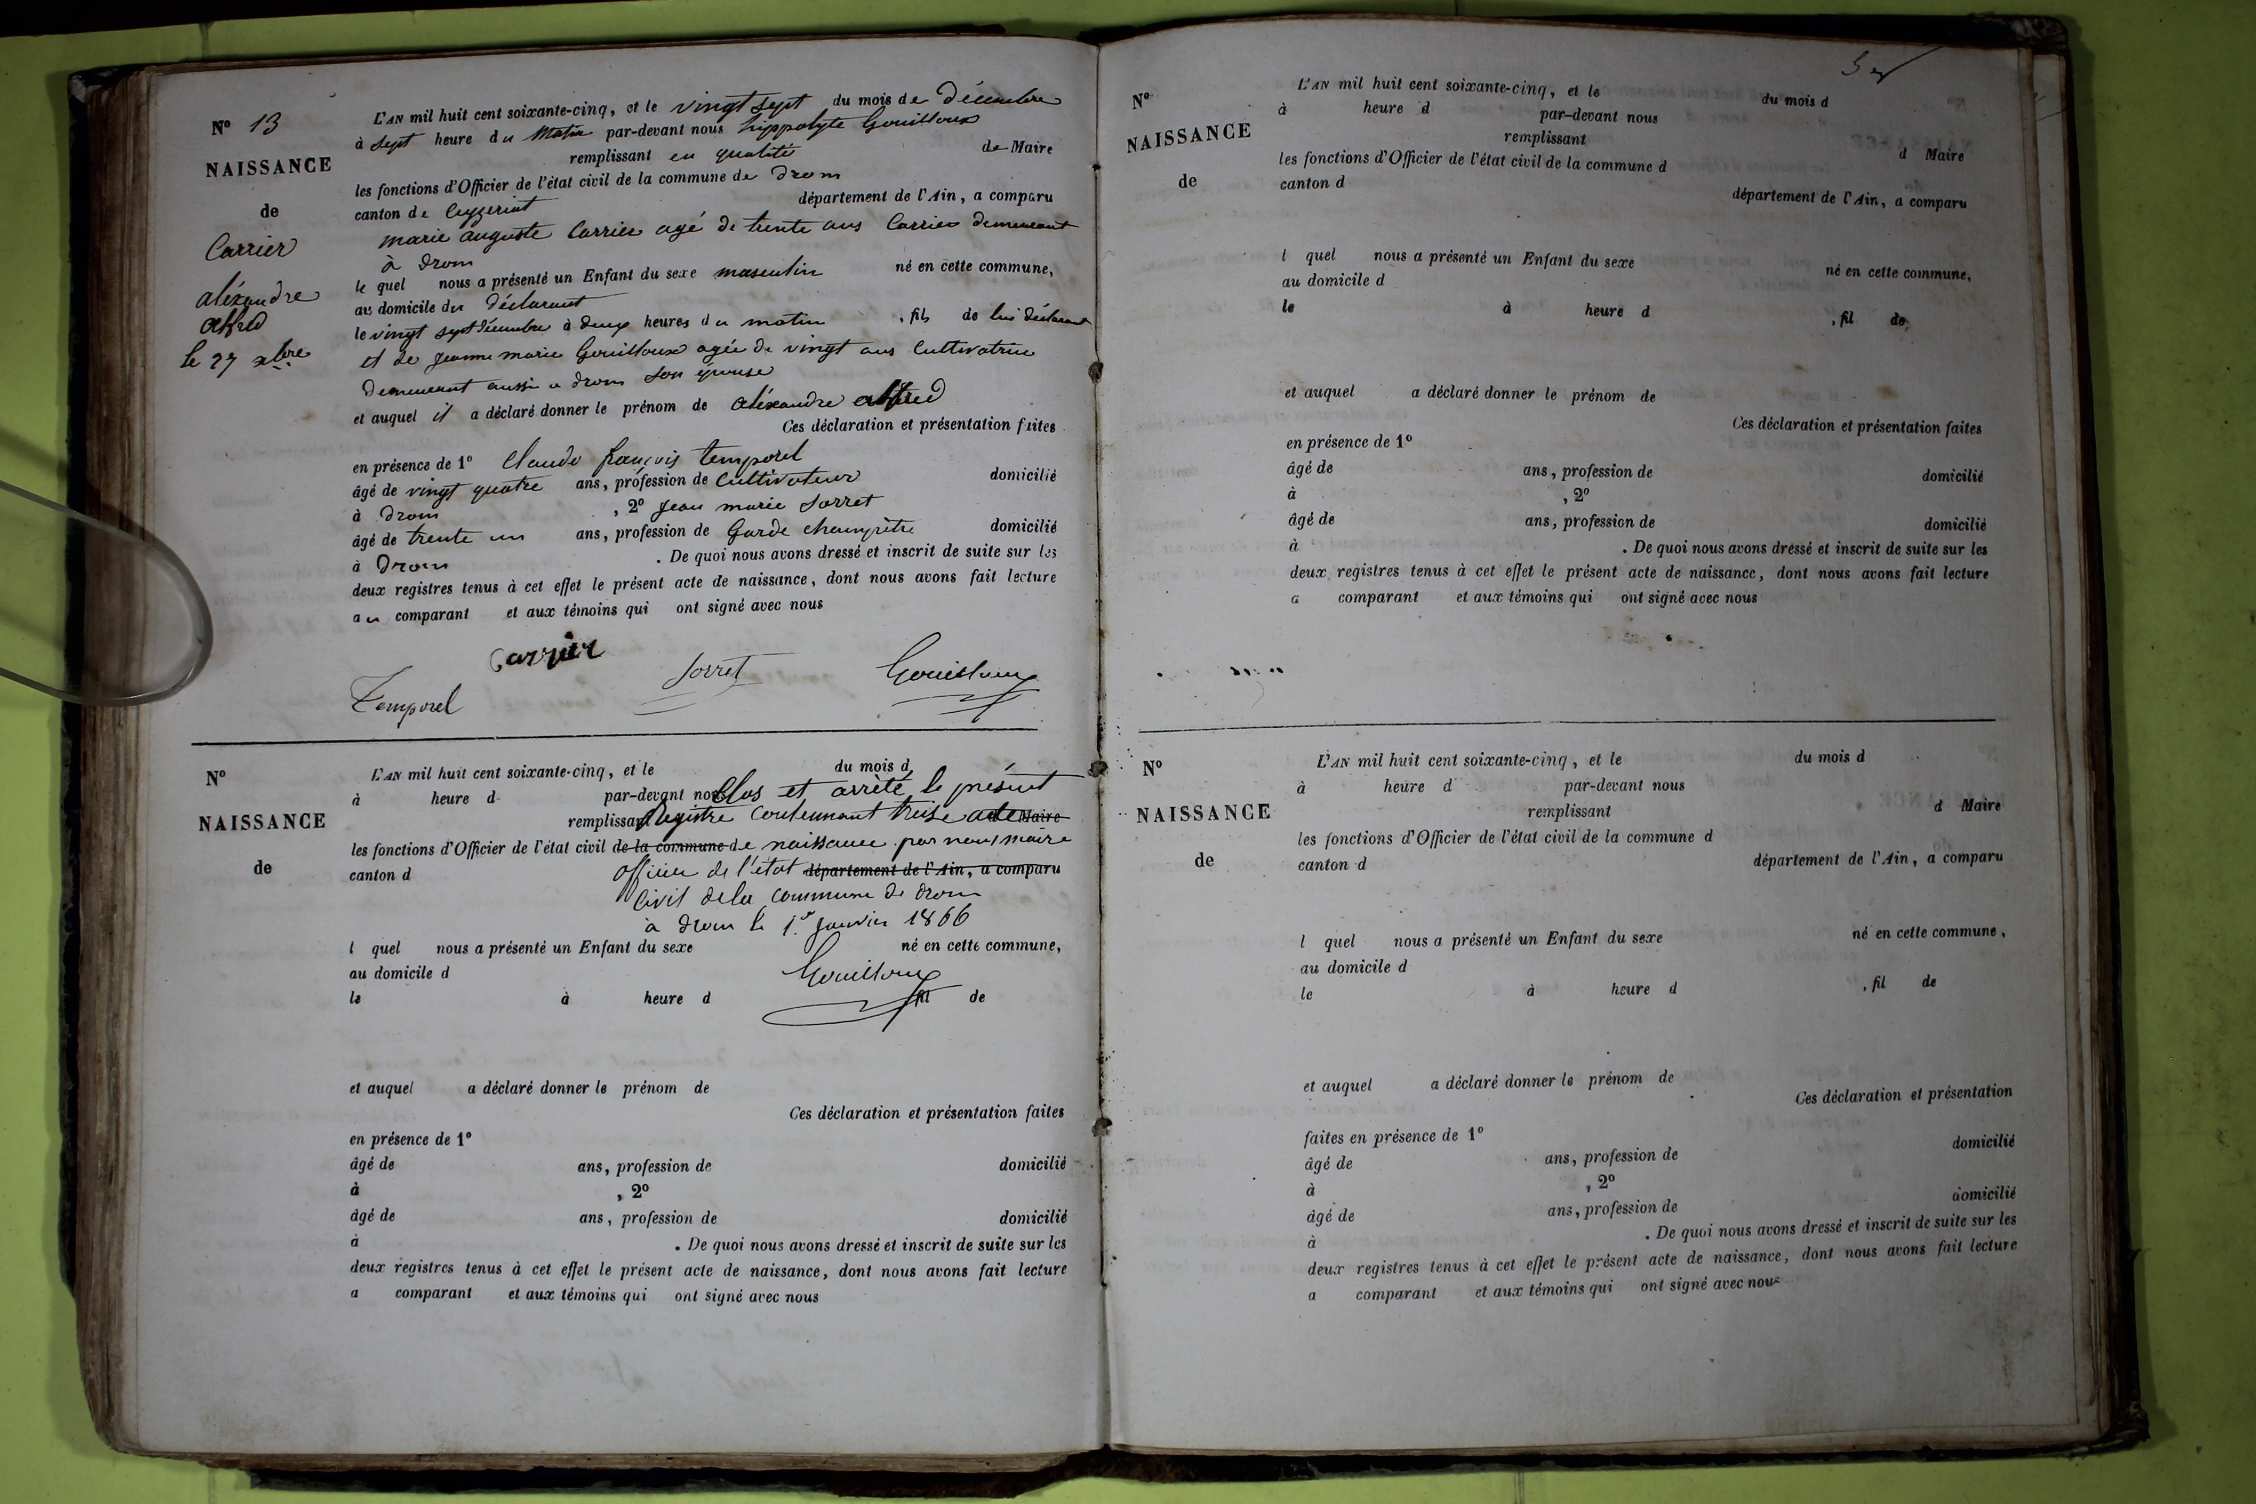 N° 13
NAISSANCE
de
Carrier
aléxandre
alfred
le 27 xbre
L'AN mil huit cent soixante-cinq, et le vingt sept du mois de décembre
à sept heure du Matin par-devant nous hippolyte Gouilloux
remplissant en qualité de Maire
les fonctions d'Officier de l'état civil de la commune de drom
canton de Ceyzeriat département de l'Ain, a comparu
marie auguste Carrier agé de trente ans Carrier demeurant
à drom
le quel nous a présenté un Enfant du sexe masculin né en cette commune,
au domicile du déclarant
le vingt sept décembre à deux heures du matin , fils de lui déclarant
et de jeanne marie Gouilloux agée de vingt ans Cultivatrice
demeurant aussi a drom son épouse
et auquel il a déclaré donner le prénom de aléxandre alfred
Ces déclaration et présentation faites
en présence de 1° Claude françois temporel
âgé de vingt quatre ans, profession de Cultivateur domicilié
à drom , 2° jean marie Sorret
âgé de trente un ans, profession de Garde champêtre domicilié
à drom . De quoi nous avons dressé et inscrit de suite sur les
deux registres tenus à cet effet le présent acte de naissance, dont nous avons fait lecture
au comparant et aux témoins qui ont signé avec nous
Carrier
Sorret
Gouilloux
Temporel
N°
NAISSANCE
de
L'AN mil huit cent soixante-cinq, et le du mois d
à heure d par-devant nous Clos et arrêté le présent
remplissant Registre Contennant treise acte Maire
les fonctions d'Officier de l'état civil de la commune de naissance par nous maire
canton d officier de l'état département de l'Ain, a comparu
Civil de la Commune de drom
à drom le 1er janvier 1866
l quel nous a présenté un Enfant du sexe né en cette commune,
au domicile d
Gouilloux
le à heure d fil de
et auquel a déclaré donner le prénom de
Ces déclaration et présentation faites
en présence de 1°
âgé de ans, profession de domicilié
à , 2°
âgé de ans, profession de domicilié
à . De quoi nous avons dressé et inscrit de suite sur les
deux registres tenus à cet effet le présent acte de naissance, dont nous avons fait lecture
a comparant et aux témoins qui ont signé avec nous
N°
NAISSANCE
de
L'AN mil huit cent soixante-cinq, et le du mois d
à heure d par-devant nous
remplissant d Maire
les fonctions d'Officier de l'état civil de la commune d
canton d département de l'Ain, a comparu
l quel nous a présenté un Enfant du sexe né en cette commune,
au domicile d
le à heure d , fil de
et auquel a déclaré donner le prénom de
Ces déclaration et présentation faites
en présence de 1°
âgé de ans, profession de domicilié
à , 2°
âgé de ans, profession de domicilié
à . De quoi nous avons dressé et inscrit de suite sur les
deux registres tenus à cet effet le présent acte de naissance, dont nous avons fait lecture
a comparant et aux témoins qui ont signé avec nous
N°
NAISSANCE
de
L'AN mil huit cent soixante-cinq, et le du mois d
à heure d par-devant nous
remplissant d Maire
les fonctions d'Officier de l'état civil de la commune d
canton d département de l'Ain, a comparu
l quel nous a présenté un Enfant du sexe né en cette commune,
au domicile d
le à heure d , fil de
et auquel a déclaré donner le prénom de
Ces déclaration et présentation
faites en présence de 1°
âgé de ans, profession de domicilié
à , 2°
âgé de ans, profession de domicilié
à . De quoi nous avons dressé et inscrit de suite sur les
deux registres tenus à cet effet le présent acte de naissance, dont nous avons fait lecture
a comparant et aux témoins qui ont signé avec nous